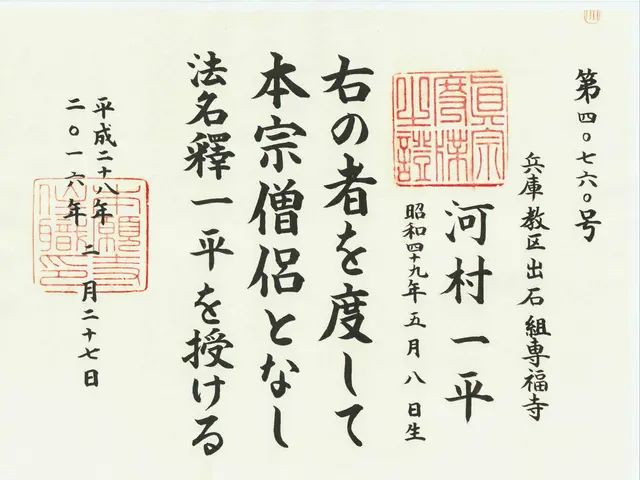 第四〇七六〇号
兵庫教区出石組専福寺
眞宗
度牒
之證
河村一平
昭和四十九年五月八日生
右の者を度して
本宗僧侶となし
法名釋一平を授ける
平成二十八年
二〇一六年
二月二十七日
本願寺
住職印